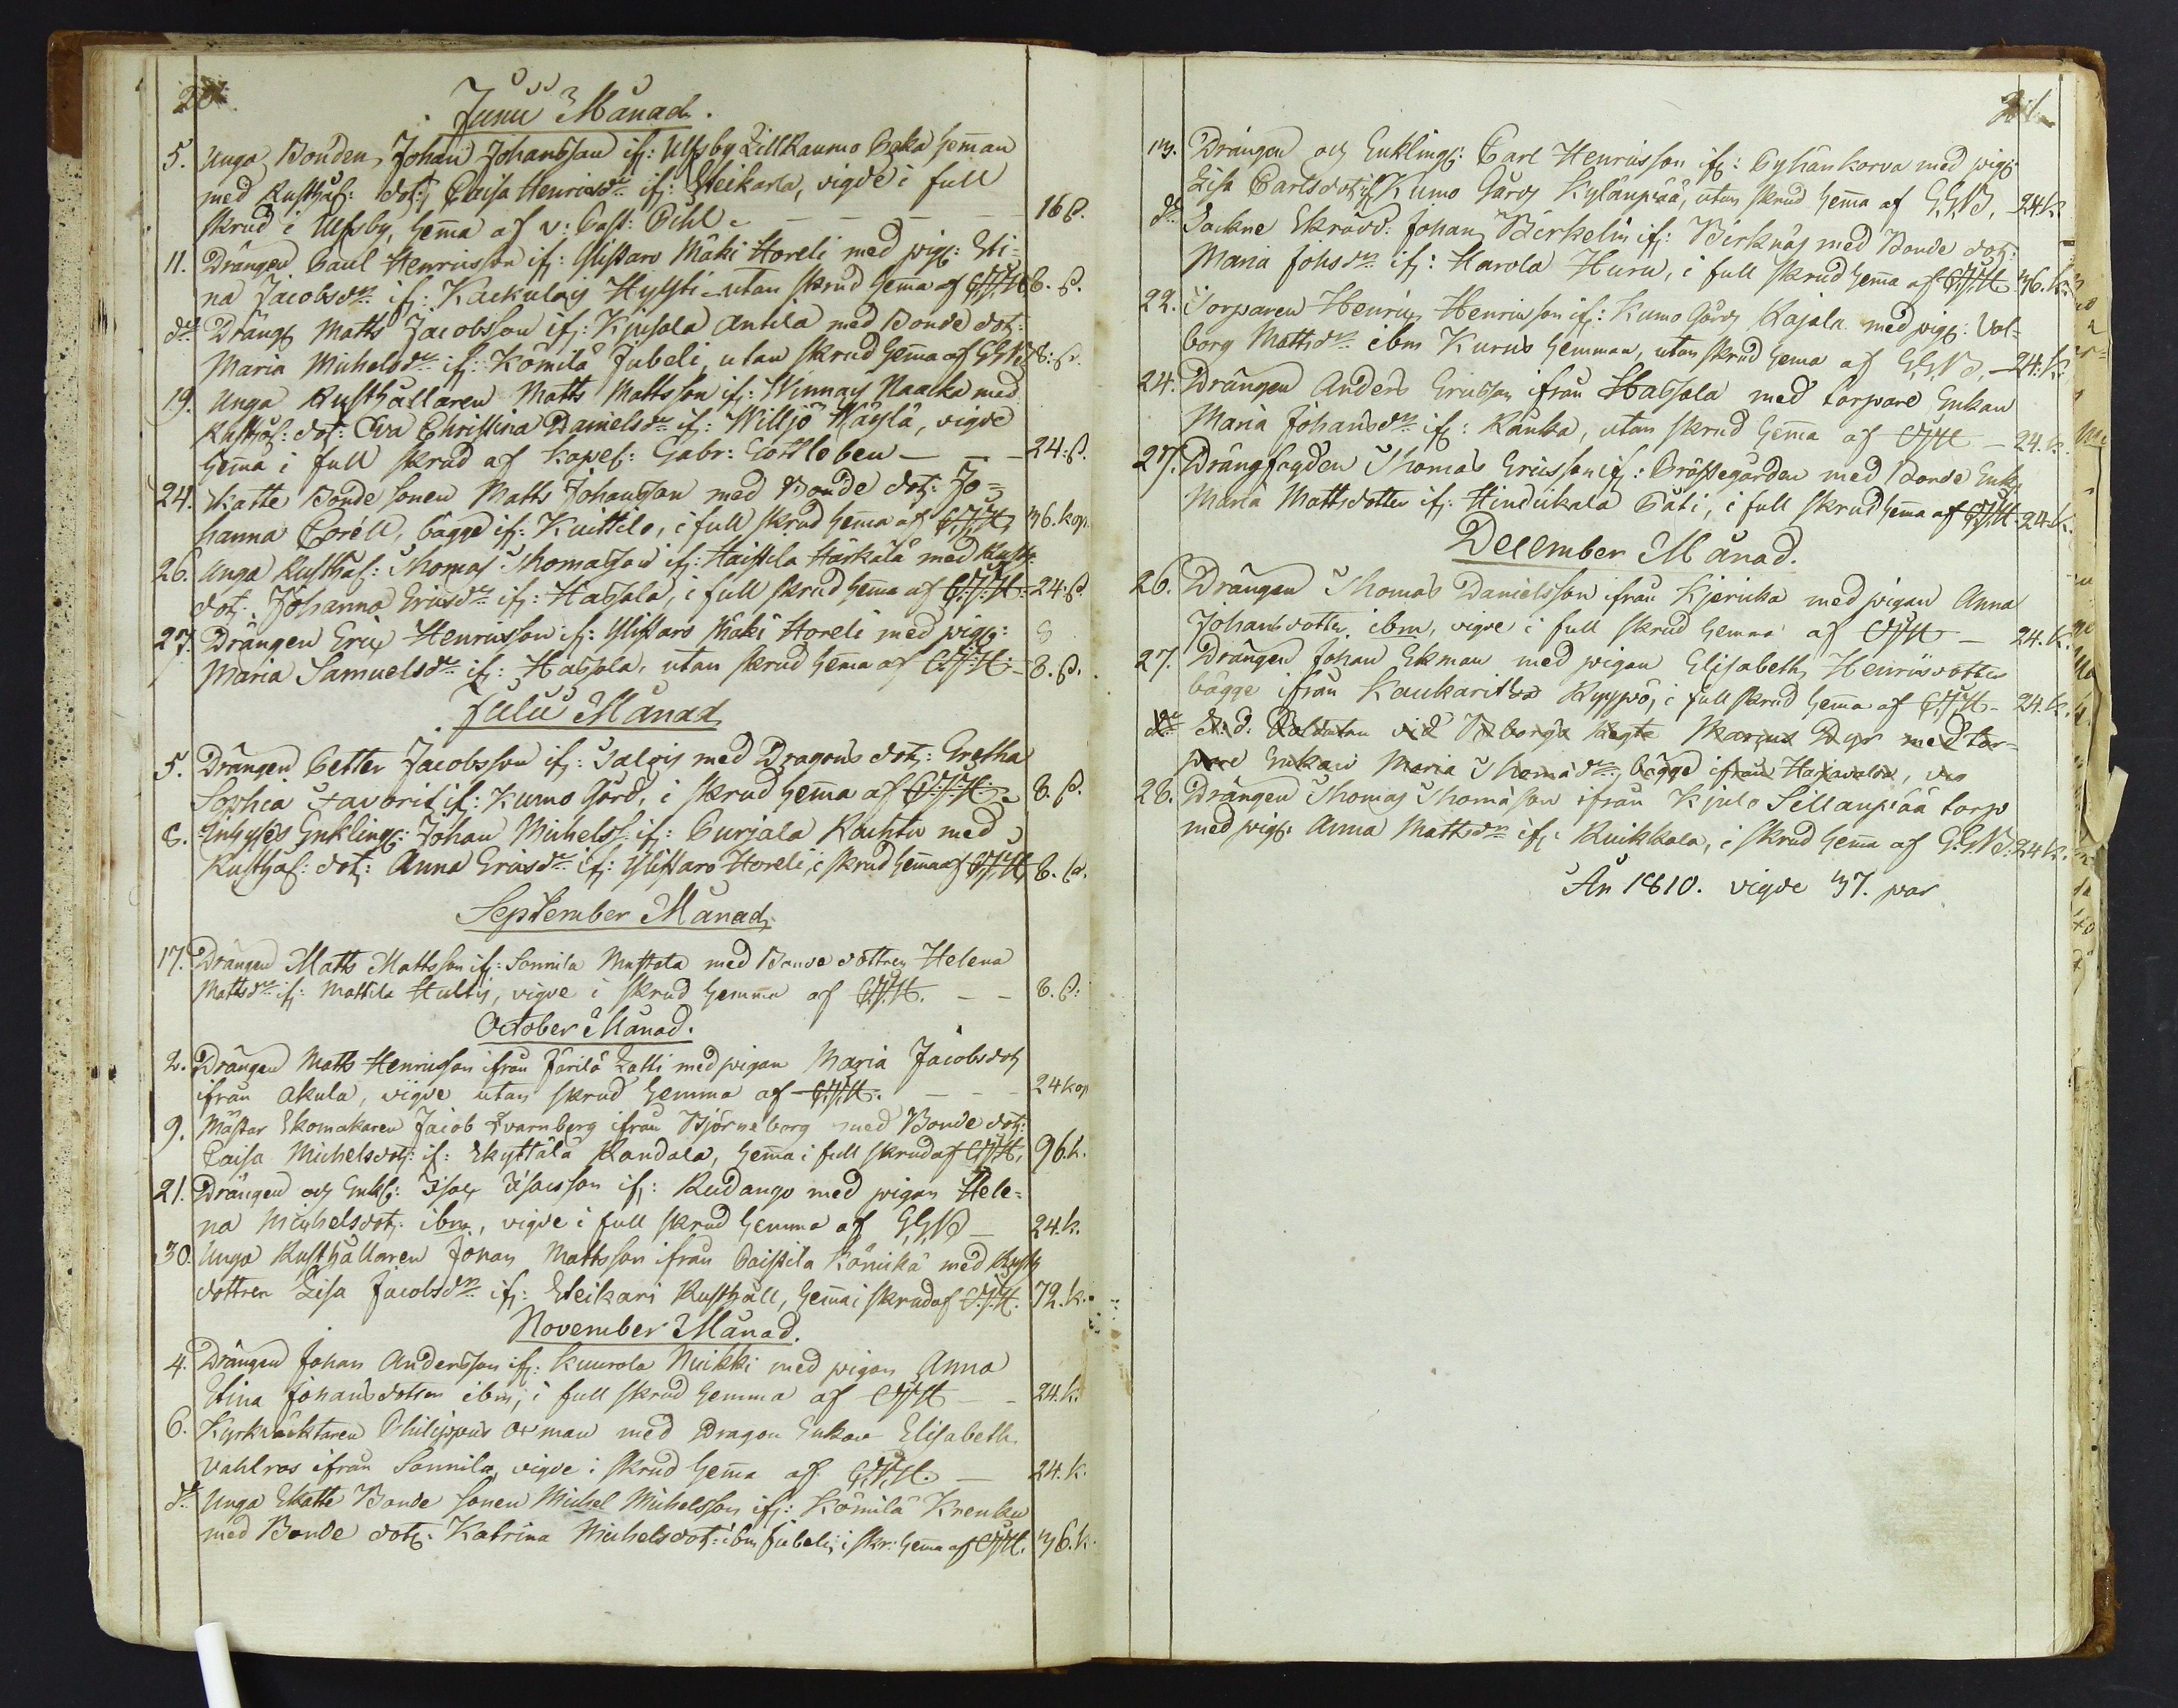 20.
Junii Månad.
5. Unga Bonden Johan Johansson ifr: Ulfsby Lillraumo Pekka hemman
med Rusthål: dotr: Caisa Henricsdr ifr: Steikarla, vigde i full
skrud i Ulfsby, hemma af v: Past: Pihl - 16 ß.
11. Drängen Paul Henricsson ifr: Ylistaro Mäki Horeli med pig: Sti-
na Jacobsdr ifr: Kaekulay Hyysti utan skrud hemma af 8. ß.
dr Dräng Matts Jacobsson ifr: Kjusala Antila med Bonde dotr:
Maria Michelsdr ifr: Kömilä Jubeli, utan skrud hemma af G.G.N. 8. ß.
19. Unga Rusthållaren Matts Mattsson ifr: Winnay Naacka med
Rusthål: dotr: Eva Christina Danielsdr ifr: Willjö Wäylä, vigde
hemma i full skrud af Kapel: Gabr: Gottleben - 24. ß.
24. Skatte Bonde sonen Matts Johansson med Bonde dotr: Jo-
hanna Corell, bägge ifr: Kuittilo, i full skrud hemma af 36. kop.
26. Unga Rusthål: Thomas Thomasson ifr: Haistila Härkälä med Rusth:
dotr: Johanna Ericsdr ifr: Hassala, i full skrud hemma af 24. ß.
27. Drängen Eric Henricsson ifr: Ylistaro Mäki Horeli med pig:
Maria Samuelsdr ifr: Hassala, utan skrud hemma af 8. ß.
Julii Månad
5. Drängen Petter Jacobsson ifr: med Dragons dotr: Gretha
Sophia Favorit ifr: Kumo Gård, i skrud hemma af 8. ß.
8. Inhyses Enkling: Johan Michelss: ifr: Purjala Rauhtu med
Rusthål: dotr: Anna Ericsdr ifr: Ylistaro Horeli, i skrud hemma af 8. ß.
September Månad
17. Drängen Matts Mattsson ifr: Sonnila Mustola med Bonde dottren Helena
Mattsdr ifr: Mattila Hultij, vigde i skrud hemma af - - 8. ß:
October Månad.
2. Drängen Matts Henricsson ifrån Järilä Latti med pigan Maria Jacobsdotr
ifrån Akula, vigde utan skrud hemma af - - - 24 kop
9. Mästar Skomakaren Jacob Qvarnberg ifrån Björneborg med Bonde dotr:
Caisa Michelsdotr: ifr: Skyttälä Randala, hemma i full skrud af 96. k.
21. Drängen och Enkl: Isac Isacsson ifr: Rudango med pigan Hele-
na Michelsdotr: ibm, vigde i full skrud hemma af G.G.N. - 24. k.
30. Unga Rusthållaren Johan Mattsson ifrån Paistila Könikä med Rusth
dottren Lisa Jacobsdr ifr: Steikari Rusthåll, hemma i skrud af 72. k.
November Månad.
4. Drängen Johan Andersson ifr: Kuurola Nuikki med pigan Anna
Stina Johansdotter ibm, i full skrud hemma af - - 24. k.
6. Kyrkväktaren Philippus Orman med Dragon Enkan Elisabeth
Vahlros ifrån Sonnila, vigde i skrud hemma af - 24. k.
dr Unga Skatte Bonde sonen Michel Michelsson ifr: Kömilä Krenku
med Bonde dotr: Katrina Michelsdotr: ibm Jubeli, i skr: hemma af 36. k.
21.
13. Drängen och Enkling: Carl Henricsson ifr: Pyhänkorva med pig:
Lisa Carlsdotr ifr Kumo Gårds Kylänpää, utan skrud hemma af G.G.N. 24 k.
dr Sockne Skrädd: Johan Birkelin ifr: Birknäs med Bonde dotr:
Maria Johsdr ifr: Harola Huru, i full skrud hemma af 36. k.
22. Torparen Henric Henricsson ifr: Kumo Gårds Rajala med pig: Val-
borg Mattsdr ibm Kurus hemman, utan skrud hemma af G.G.N. - 24. k.
24. Drängen Anders Ericsson ifrån Hassala med torpare Enkan
Maria Johansdr ifr: Ranka, utan skrud hemma af - 24. k.
27. Drängfogden Thomas Ericsson ifr: Prästegården med Bonde Enk:
Maria Mattsdotter ifr: Hindikala Päti, i full skrud hemma af 24 k.
December Månad.
26. Drängen Thomas Danielsson ifrån Kjerika med pigan Anna
Johansdotter ibm, vigde i full skrud hemma af - 24. k.
27. Drängen Johan Ekman med pigan Elisabeth Henricsdotter
bägge ifrån Kaukaritza Ryyppö, i full skrud hemma af - 24. k.
dr A. d. Soldaten vid Wiborgs Regte Marcus Dyr med tor-
pare Enkan Maria Thomædr, bägge ifrån Harjavalta,
28. Drängen Thomas Thomasson ifrån Kjulo Sillanpää torp
med pig: Anna Mattsdr ifr: Ruikkala, i skrud hemma af G.G.N. 24 k.
År 1810. vigde 37. par